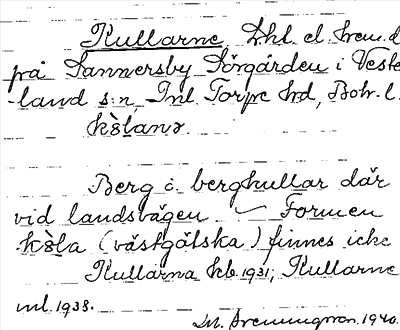 Kullarne Lhl. el. hem.d
på Sannersby Sörgården i Veste
-land s:n, Inl. Torpe hrd, Boh. l.
kö̀lanɚ.
Berg i. bergkullar där
vid landsvägen — Formen
kö̀la (västgötska) finnes icke
Kullarna hcb 1931; Kullarne
ml. 1938.
1940.